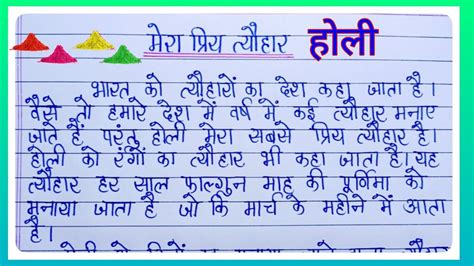 मेरा प्रिय त्यौहार होली
भारत को त्यौहारों का देश कहा जाता है।
वैसे तो हमारे देश में वर्ष में कई त्यौहार मनाए
जाते हैं परंतु होली मेरा सबसे प्रिय त्यौहार है।
होली को रंगों का त्यौहार भी कहा जाता है। यह
त्यौहार हर साल फाल्गुन माह की पूर्णिमा को
मनाया जाता है जो कि मार्च के महीने में आता
है।